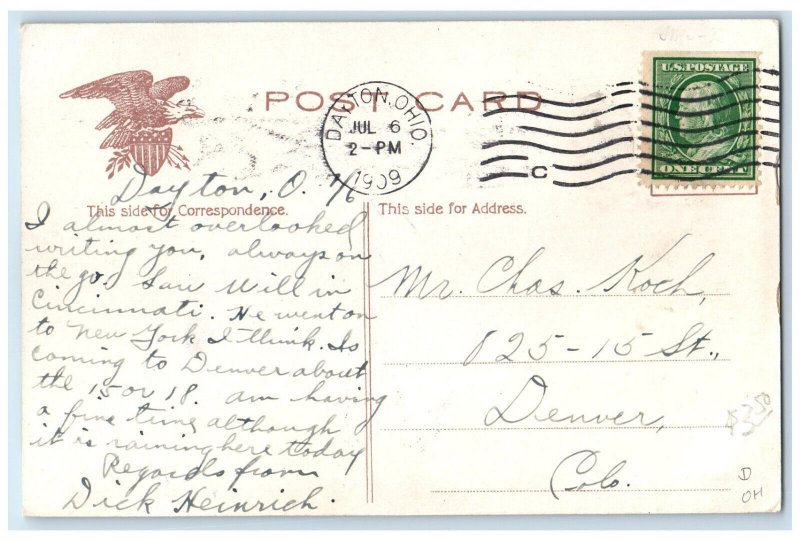 POST CARD
DAYTON, OHIO.
JUL 6
2-PM
1909
C
U.S. POSTAGE
ONE CENT
This side for Correspondence.
This side for Address.
Dayton, O. 7/6
I almost overlooked
writing you, always on
the go. Saw Will in
Cincinnati. He went on
to New York I think. Is
coming to Denver about
the 15 or 18. am having
a fine time although
it is raining here today
Regards from
Dick Heinrich.
Mr. Chas. Koch,
825-15 St.,
Denver,
Colo.
D
OH